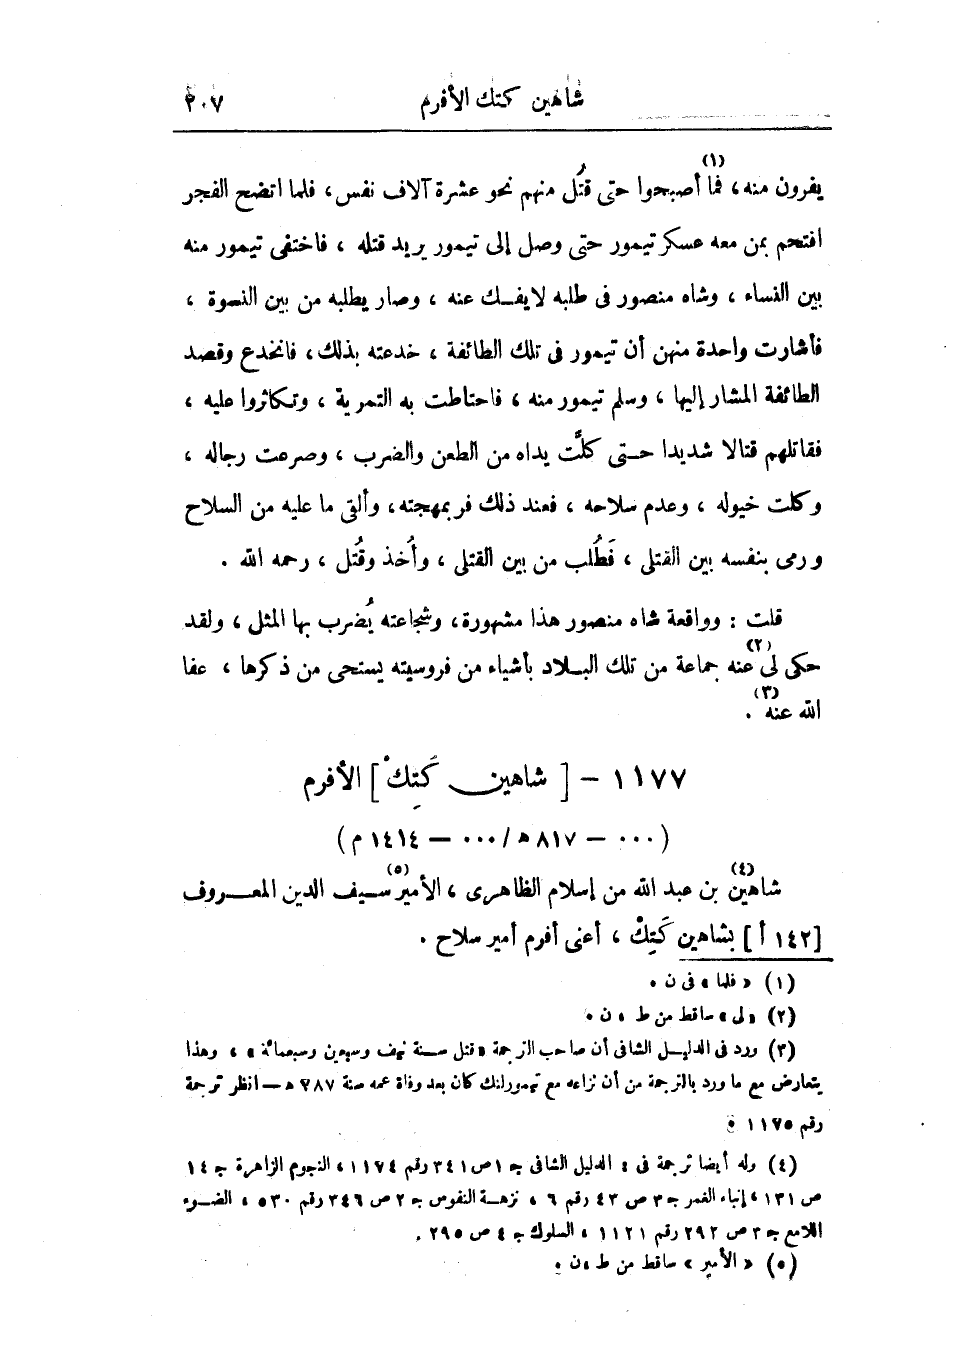 شاهين كتك الأفرم ٢٠٧
يفرون منه، فما(١) أصبحوا حتى قُتل منهم نحو عشرة آلاف نفس، فلما اتضح الفجر
اقتحم بمن معه عسكر تيمور حتى وصل إلى تيمور يريد قتله ، فاختفى تيمور منه
بين النساء ، وشاه منصور فى طلبه لا يفــك عنه ، وصار يطلبه من بين النسوة ،
فأشارت واحدة منهن أن تيمور فى تلك الطائفة ، خدعته بذلك، فانخدع وقصد
الطائفة المشار إليها ، وسلم تيمور منه ، فاحتاطت به التمرية ، وتكاثروا عليه ،
فقاتلهم قتالا شديدا حــتى كلَّت يداه من الطعن والضرب ، وصرعت رجاله ،
وكلت خيوله ، وعدم سلاحه ، فعند ذلك فر بمهجته، وألقى ما عليه من السلاح
ورمى بنفسه بين القتلى ، فَطُلب من بين القتلى ، وأُخذ وقُتل ، رحمه الله .
قلت : وواقعة شاه منصور هذا مشهورة، وشجاعته يُضرب بها المثل ، ولقد
حكى لى(٢) عنه جماعة من تلك البــلاد بأشياء من فروسيته يستحى من ذكرها ، عفا
الله عنه(٣) .
١١٧٧ – [ شاهين كَتِكْ ] الأفرم
(٠٠٠ – ٨١٧ ه / ٠٠٠ – ١٤١٤ م)
شاهين(٤) بن عبد الله من إسلام الظاهرى ، الأمير(٥) ســيف الدين المعــروف
[١٤٢ أ] بشاهين كَتِكْ ، أعنى أفرم أمير سلاح .
(١) « فلما » فى ن .
(٢) « لى » ساقط من ط ، ن .
(٣) ورد فى الدليــل الشافى أن صاحب الترجمة «قتل ســنة نيف وسبعين وسبعمائة » ، وهذا
يتعارض مع ما ورد بالترجمة من أن نزاعه مع تيمورلنك كان بعد وفاة عمه سنة ٧٨٧ هــ انظر ترجمة
رقم ١١٧٥ .
(٤) وله أيضا ترجمة فى : الدليل الشافى ج١ ص٣٤١ رقم ١١٧٤ ، النجوم الزاهرة ج ١٤
ص ١٣١ ، إنباء الغمر ج٣ ص ٤٣ رقم ٦ ، نزهــة النفوس ج ٢ ص ٣٤٦ رقم ٥٣٠ ، الضــوء
اللامع ج ٣ ص ٢٩٢ رقم ١١٢١ ، السلوك ج ٤ ص ٢٩٥ .
(٥) « الأمير » ساقط من ط ، ن .